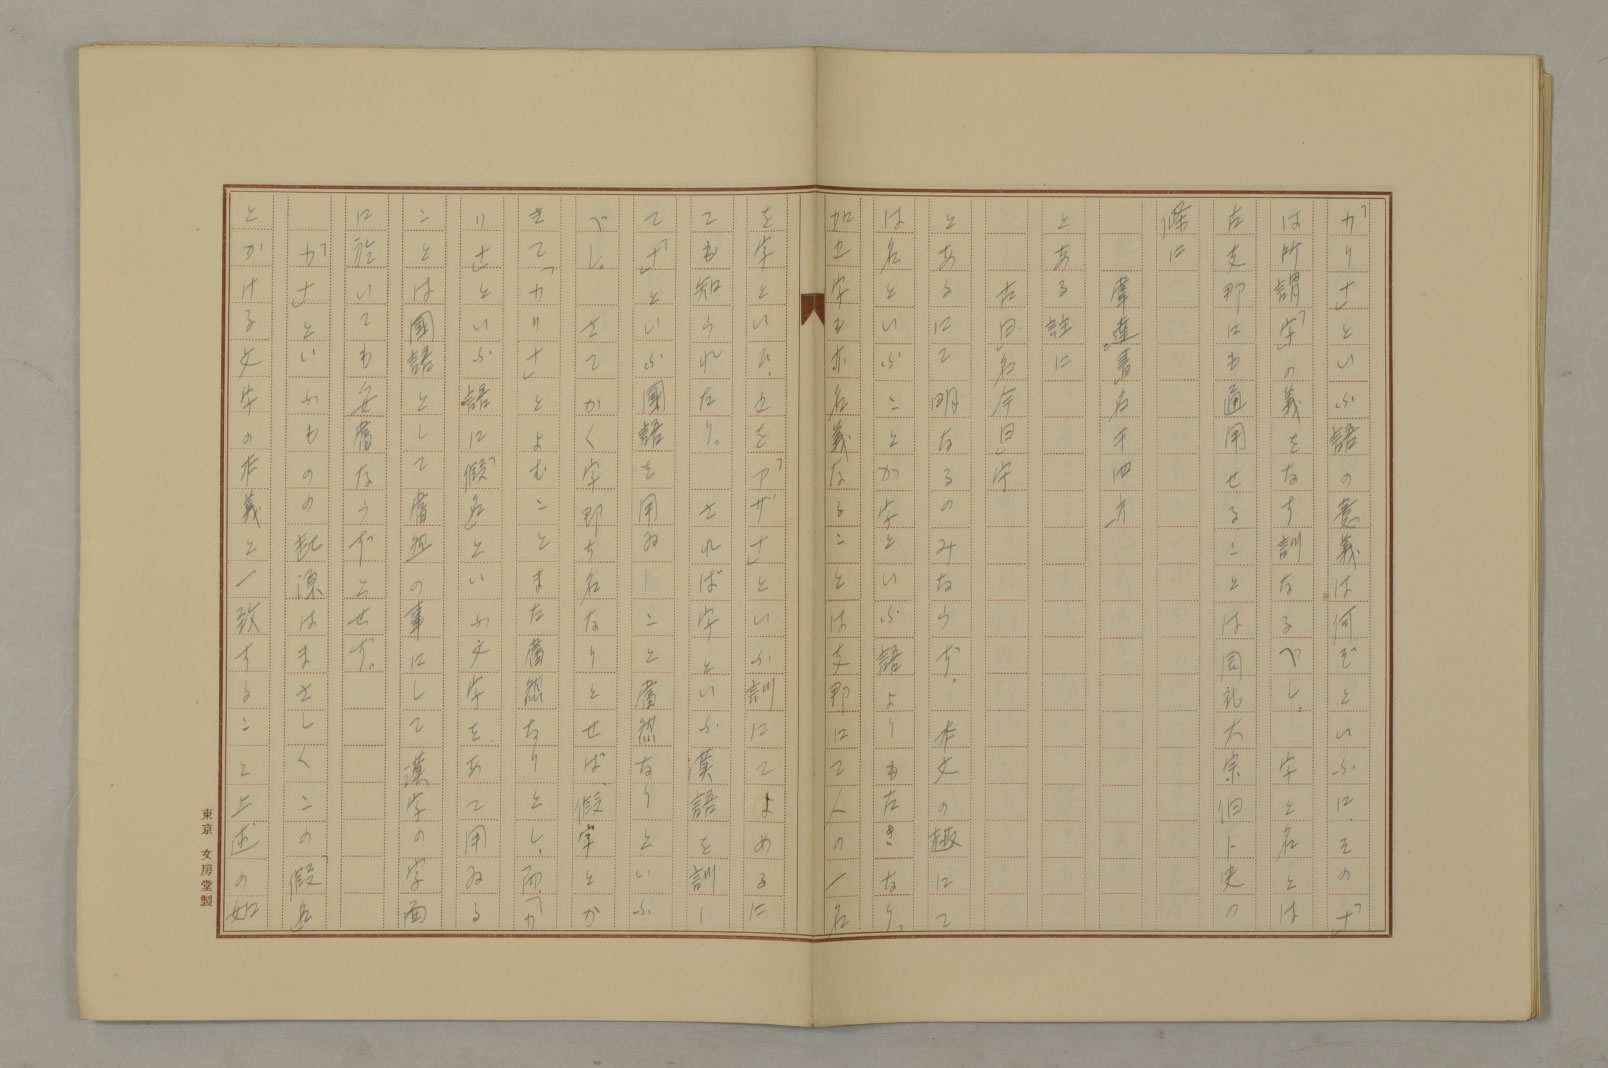 「かりナ」といふ語の意義は何ぞといふに、その「ナ」
は所謂「字」の義をなす訓なるべし。字と名とは
古支那にも通用せることは周礼大宗伯に史の
條に
掌達書名于四方
とある註に
古曰名今曰字
とあるにて明なるのみならず。本文の趣にて
は名といふことが字といふ語よりも古きなり。
加之字も亦名義なることは支那にて人の一名
を字といひ、之を「アザナ」といふ訓にてよめるに
ても知られたり。されば字といふ漢語を訓し
て「ナ」といふ國語を用ゐしこと當然なりといふ
べし。さてかく字即ち名なりとせば、假字とか
きて「カリナ」とよむことまた當然なりとし、而「カ
リナ」といふ語に「假名」といふ文字をあて用ゐる
ことは國語として當然の事にして漢字の字面
に於いても妥當ならずとせず。
「かナ」といふものの起源はまさしくこの「假名」
とかける文字の本義と一致すること上述の如
東京 文房堂製